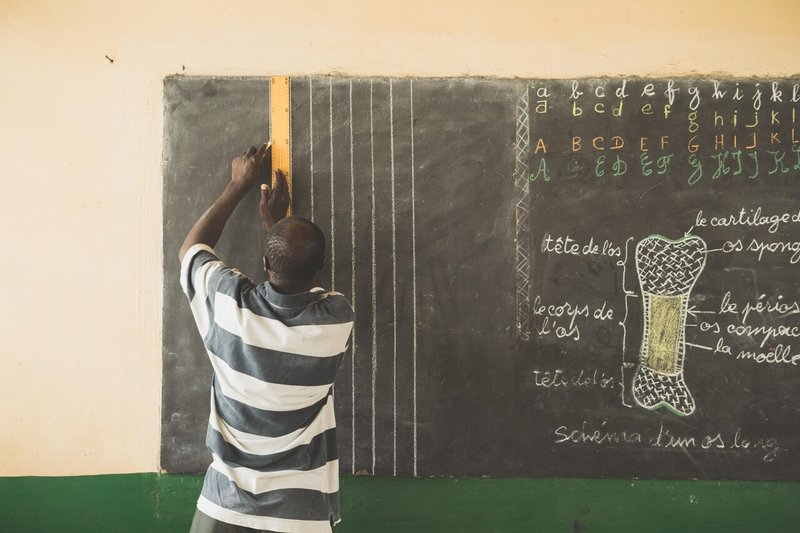 a b c d e f g h i j k l
a b c d e f g h i j k l
A B C D E F G H I J K L
A B C D E F G H I J K
le cartilage d
tête de l'os
os spong
le corps de l'os
le périos
os compac
la moëlle
tête de l'os
Schéma d'un os long